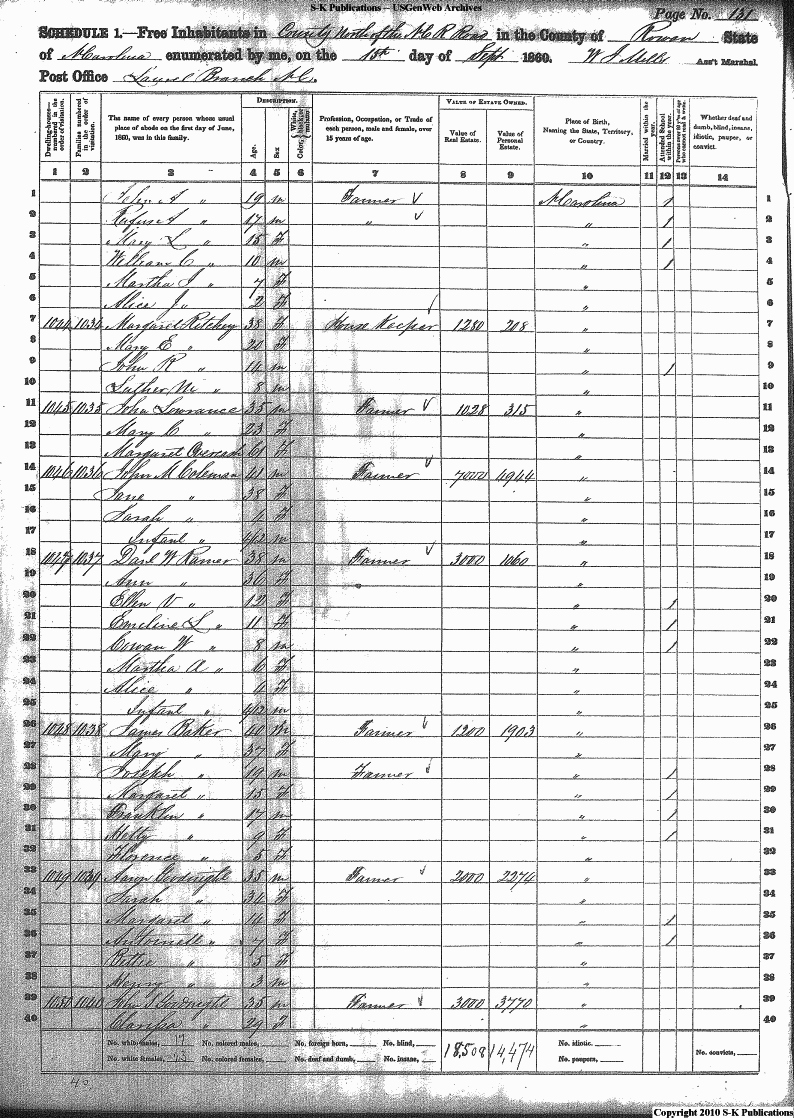 S-K Publications – USGenWeb Archives
Page No. 131
SCHEDULE 1.—Free Inhabitants in County North of the N C R Road in the County of Rowan State
of N Carolina enumerated by me, on the 15th day of Sept 1860. Ass't Marshal.
Post Office Laurel Branch N C.
Dwelling-houses—numbered in the order of visitation.
Families numbered in the order of visitation.
The name of every person whose usual place of abode on the first day of June, 1860, was in this family.
DESCRIPTION.
Age.
Sex
Color, White, black, or mulatto
Profession, Occupation, or Trade of each person, male and female, over 15 years of age.
VALUE OF ESTATE OWNED.
Value of Real Estate.
Value of Personal Estate.
Place of Birth, Naming the State, Territory, or Country.
Married within the year.
Attended School within the year.
Persons over 20 y'rs of age who cannot read & write.
Whether deaf and dumb, blind, insane, idiotic, pauper, or convict.
1 2 3 4 5 6 7 8 9 10 11 12 13 14
1 John A " 19 m Farmer N Carolina 1 1
2 Rufus A " 17 m " " 1 2
3 Mary L " 15 F " 1 3
4 William C " 10 m " 1 4
5 Martha J " 7 F " 5
6 Alice J " 2 F " 6
7 1044 1034 Margaret Ritchey 38 F House Keeper 1280 208 " 7
8 Mary E " 20 F " 8
9 John R " 14 m " 1 9
10 Luther " 8 m " 10
11 1045 1035 John Lowrance 35 m Farmer 1028 315 " 11
12 Mary C " 23 F " 12
13 Margaret Overcash 61 F " 13
14 1046 1036 John M Coleman 41 m Farmer 7000 4944 " 14
15 Jane " 38 F " 15
16 Sarah " 4 F " 16
17 Infant " 4/12 m " 17
18 1047 1037 W Ramer 38 m Farmer 3000 1060 " 18
19 Ann " 36 F " 19
20 Ellen V " 12 F " 1 20
21 Emeline L " 11 F " 1 21
22 Cowan W " 8 m " 1 22
23 Martha A " 6 F " 23
24 Alice " 4 F " 24
25 Infant " 4/12 m " 25
26 1048 1038 James Baker 40 m Farmer 1200 1903 " 26
27 Mary " 37 F " 27
28 Joseph " 19 m Farmer " 1 28
29 Margaret " 15 F " 1 29
30 Franklin " 17 m " 1 30
31 Hetty " 9 F " 1 31
32 Florence " 5 F " 32
33 1049 1039 Aaron Goodnight 35 m Farmer 2000 2274 " 33
34 Sarah " 34 F " 34
35 Margaret " 14 F " 1 35
36 Antoinett " 7 F " 1 36
37 " 5 F " 37
38 Henry " 3 m " 38
39 1050 1040 John Goodnight 35 m Farmer 3000 3770 " 39
40 Clarissa " 29 F " 40
No. white males, 17 No. colored males, No. foreign born, No. blind, 18,508 14,474 No. idiotic, No. convicts,
No. white females, 23 No. colored females, No. deaf and dumb, No. insane, No. paupers,
40
Copyright 2010 S-K Publications